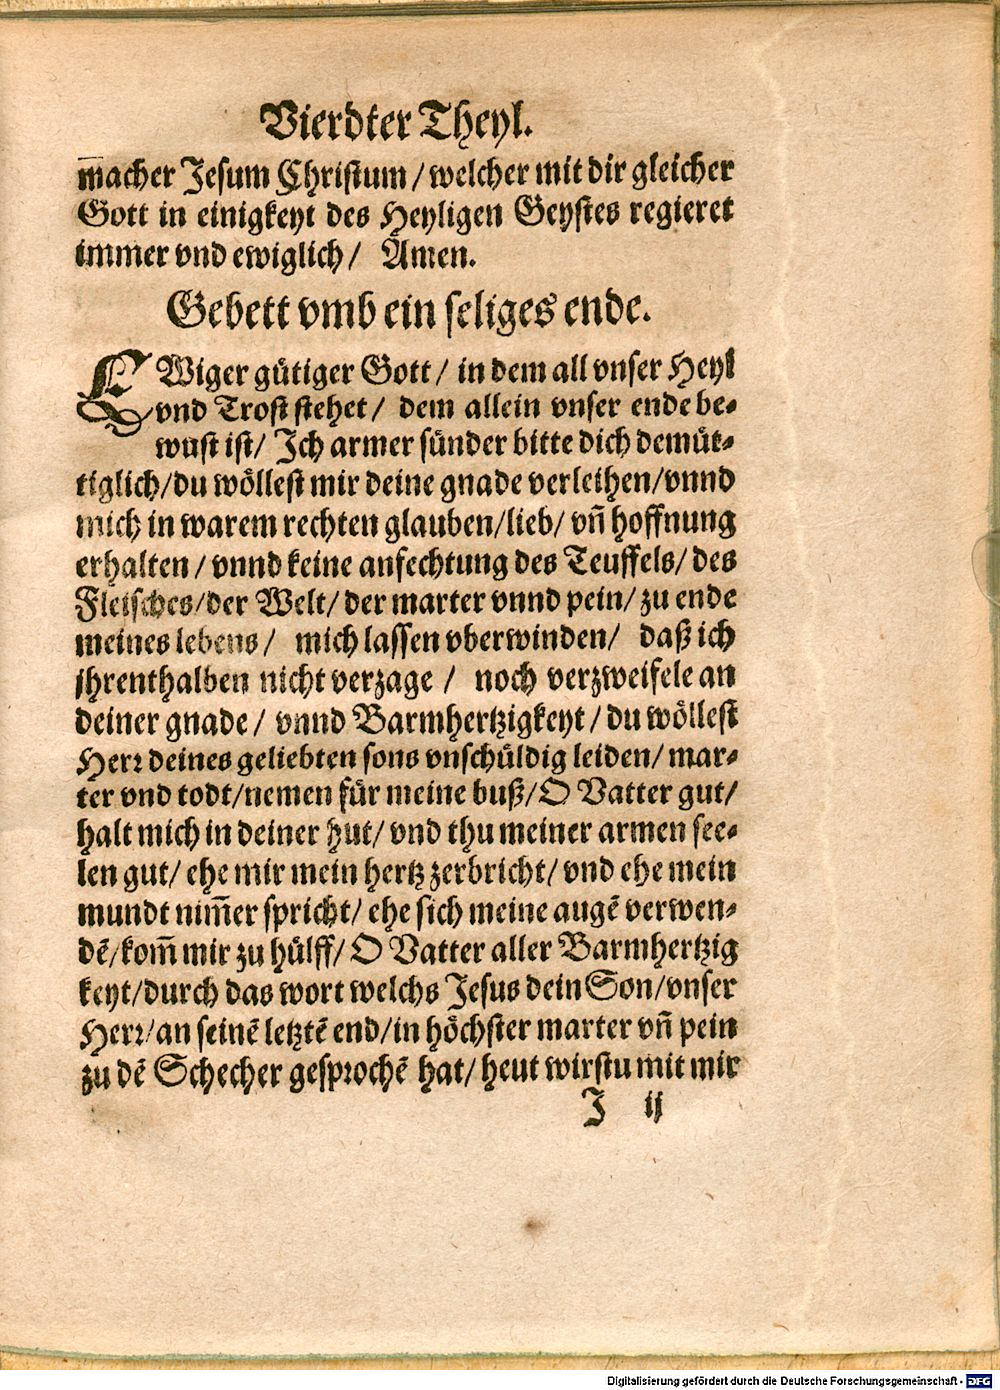 Vierdter Theyl.
m̄acher Jesum Christum / welcher mit dir gleicher
Gott in einigkeyt des Heyligen Geystes regieret
immer vnd ewiglich / Amen.
Gebett vmb ein seliges ende.
EWiger gütiger Gott / in dem all vnser Heyl
vnd Trost stehet / dem allein vnser ende be-
wust ist / Ich armer sünder bitte dich demüt-
tiglich / du wöllest mir deine gnade verleihen / vnnd
mich in warem rechten glauben / lieb / vn̄ hoffnung
erhalten / vnnd keine anfechtung des Teuffels / des
Fleisches / der Welt / der marter vnnd pein / zu ende
meines lebens / mich lassen vberwinden / daß ich
jhrenthalben nicht verzage / noch verzweifele an
deiner gnade / vnnd Barmhertzigkeyt / du wöllest
Herr deines geliebten sons vnschüldig leiden / mar-
ter vnd todt / nemen für meine buß / O Vatter gut /
halt mich in deiner hut / vnd thu meiner armen see-
len gut / ehe mir mein hertz zerbricht / vnd ehe mein
mundt nim̄er spricht / ehe sich meine augē verwen-
dē / kom̄ mir zu hülff / O Vatter aller Barmhertzig
keyt / durch das wort welchs Jesus dein Son / vnser
Herr / an seinē letztē end / in höchster marter vn̄ pein
zu dē Schecher gesprochē hat / heut wirstu mit mir
J ij
Digitalisierung gefördert durch die Deutsche Forschungsgemeinschaft - DFG